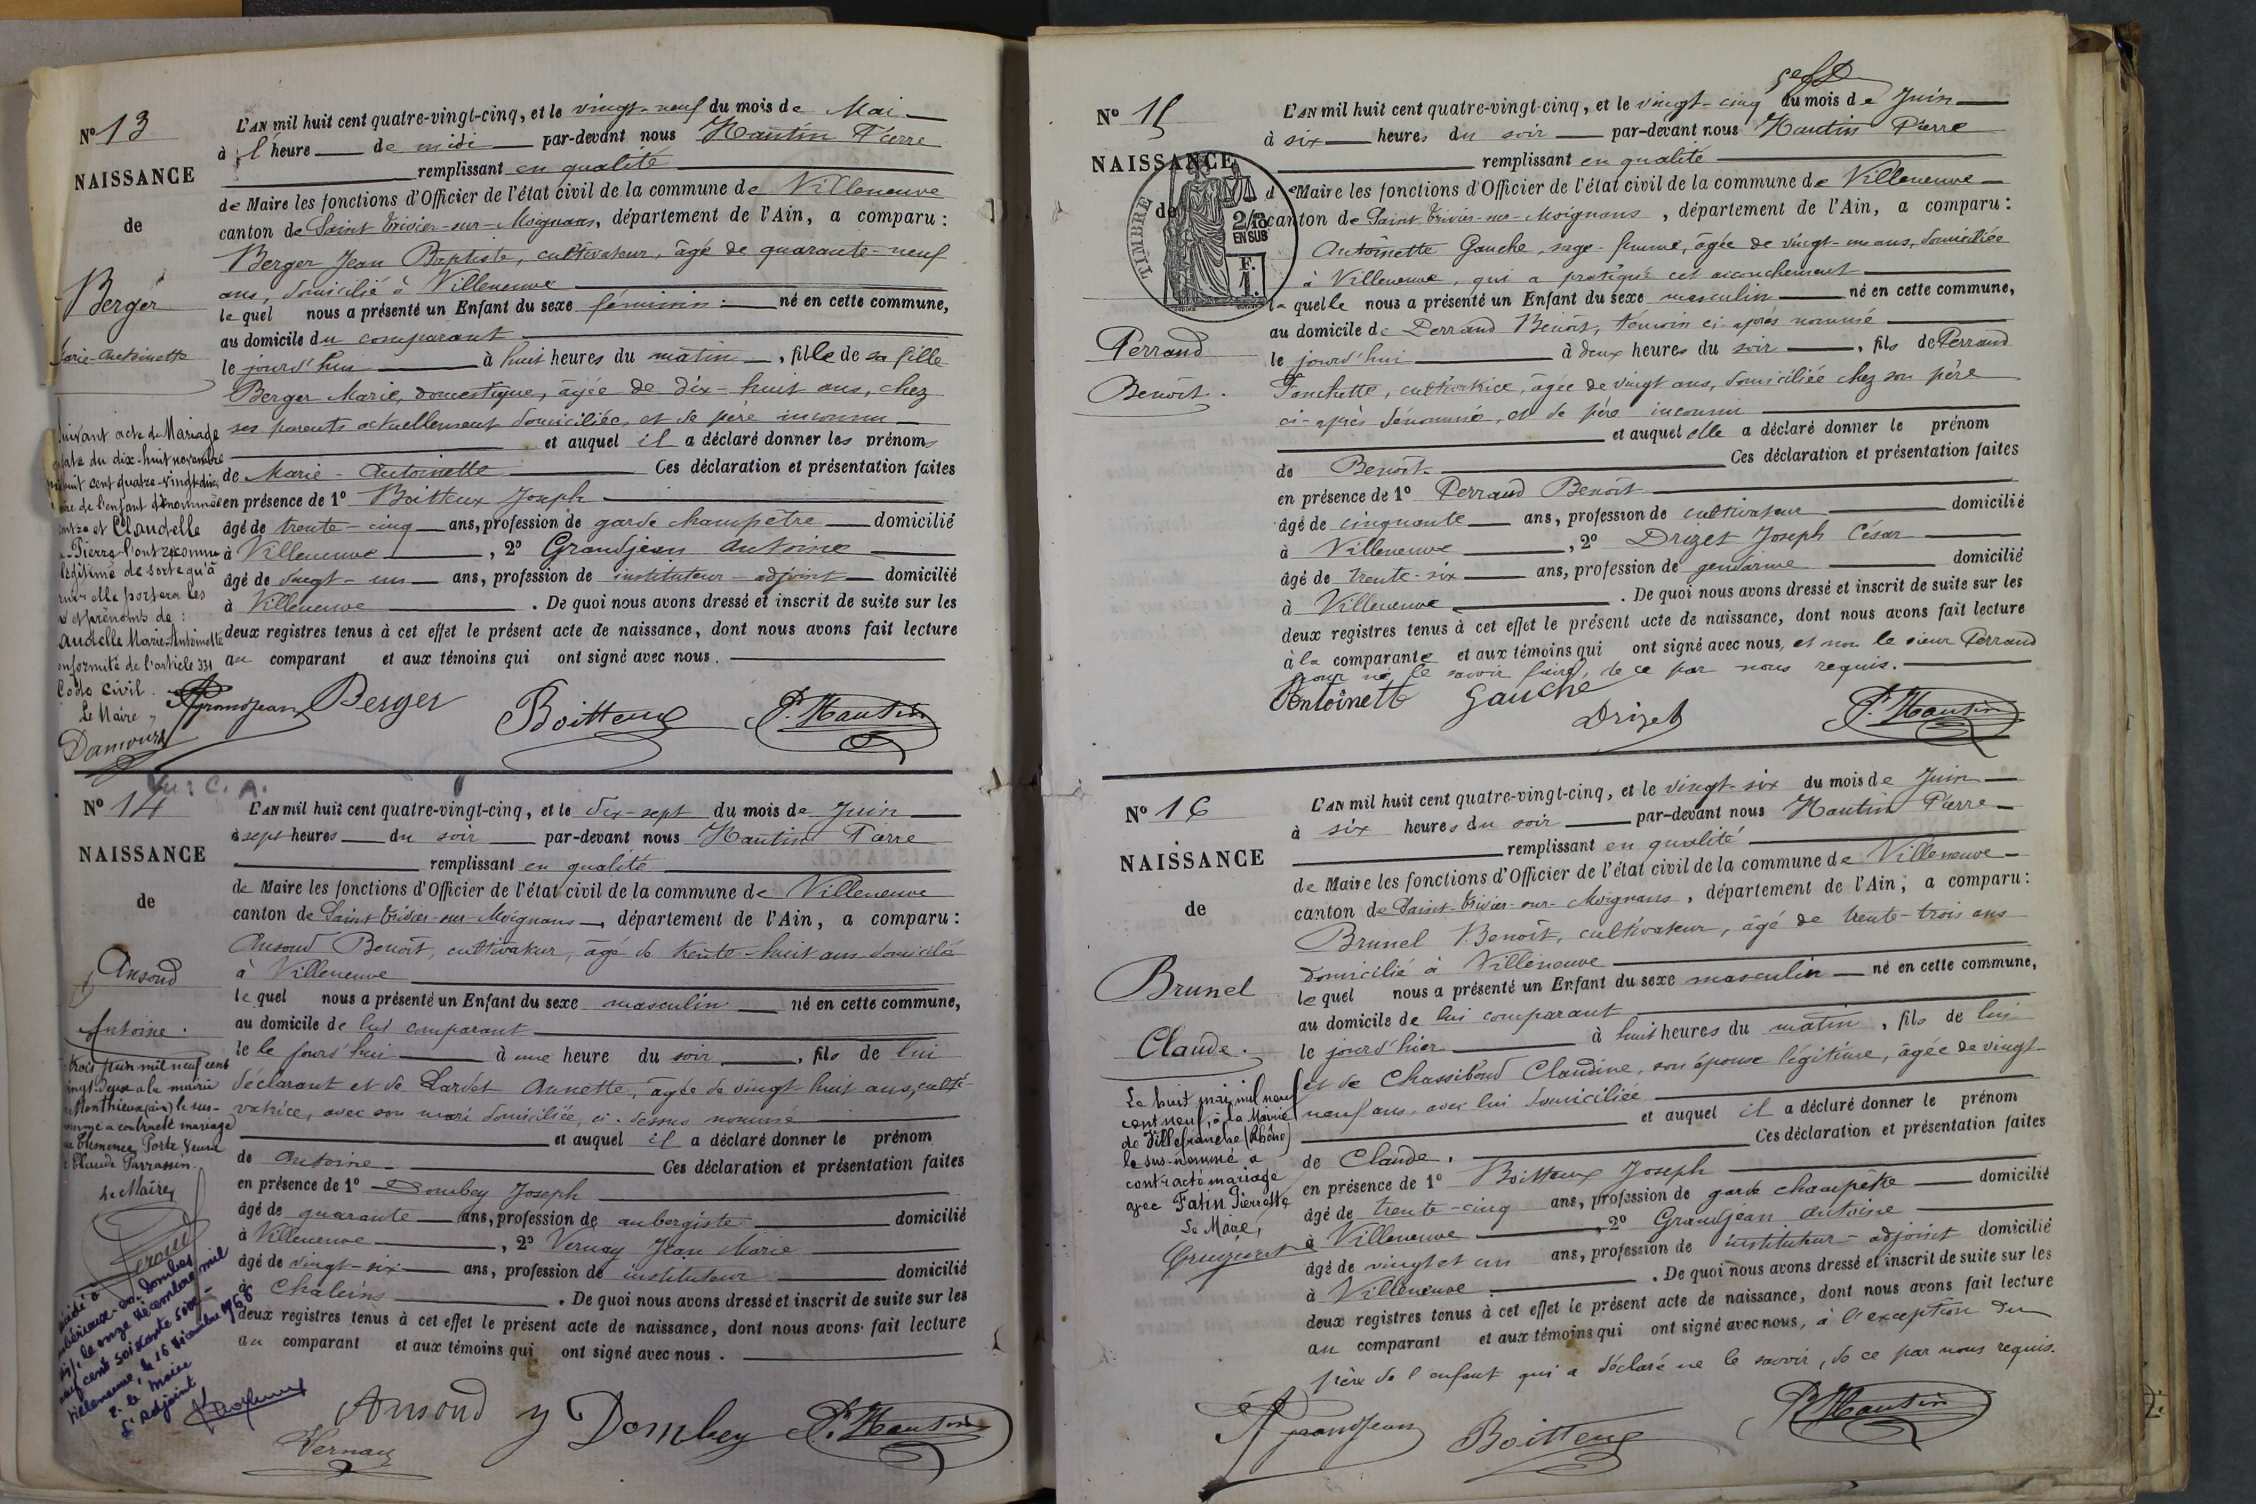 Nº 13
NAISSANCE
de
Berger
Marie-Antoinette
L'AN mil huit cent quatre-vingt-cinq, et le vingt-neuf du mois de Mai
à 1 heure de midi par-devant nous Hautin Pierre
remplissant en qualité
de Maire les fonctions d'Officier de l'état civil de la commune de Villeneuve
canton de Saint-Trivier-sur-Moignans, département de l'Ain, a comparu :
Berger Jean Baptiste, cultivateur, âgé de quarante-neuf
ans, domicilié à Villeneuve
lequel nous a présenté un Enfant du sexe féminin né en cette commune,
au domicile du comparant
le jourd'hui à huit heures du matin, fille de sa fille
Berger Marie, domestique, âgée de dix-huit ans, chez
ses parents actuellement domiciliée, et de père inconnu
et auquel il a déclaré donner les prénoms
de Marie-Antoinette Ces déclaration et présentation faites
en présence de 1º Boitteux Joseph
âgé de trente-cinq ans, profession de garde champêtre domicilié
à Villeneuve, 2º Grandjean Antoine
âgé de vingt-un ans, profession de instituteur-adjoint domicilié
à Villeneuve. De quoi nous avons dressé et inscrit de suite sur les
deux registres tenus à cet effet le présent acte de naissance, dont nous avons fait lecture
au comparant et aux témoins qui ont signé avec nous.
AGrandjean Berger Boitteux P. Hautin
suivant acte de Mariage
date du dix-huit novembre
huit cent quatre-vingt-dix
de l'enfant dénommée
contre et Claudelle
Pierre l'ont reconnue
légitimé de sorte qu'à
elle portera les
et prénoms de :
Claudelle Marie-Antoinette
conformité de l'article 331
Code civil.
Le Maire,
Damours
Vu : C. A.
Nº 14
NAISSANCE
de
Ansoud
Antoine.
L'AN mil huit cent quatre-vingt-cinq, et le dix-sept du mois de Juin
à sept heures du soir par-devant nous Hautin Pierre
remplissant en qualité
de Maire les fonctions d'Officier de l'état civil de la commune de Villeneuve
canton de Saint-Trivier-sur-Moignans, département de l'Ain, a comparu :
Ansoud Benoît, cultivateur, âgé de trente-huit ans domicilié
à Villeneuve
lequel nous a présenté un Enfant du sexe masculin né en cette commune,
au domicile de lui comparant
le le jourd'hui à une heure du soir, fils de lui
déclarant et de Lardet Annette, âgée de vingt huit ans, culti-
vatrice, avec son mari domiciliée, ci-dessus nommé
et auquel il a déclaré donner le prénom
de Antoine. Ces déclaration et présentation faites
en présence de 1º Dombey Joseph
âgé de quarante ans, profession de aubergiste domicilié
à Villeneuve, 2º Vernay Jean Marie
âgé de vingt-six ans, profession de instituteur domicilié
à Chaleins. De quoi nous avons dressé et inscrit de suite sur les
deux registres tenus à cet effet le présent acte de naissance, dont nous avons fait lecture
au comparant et aux témoins qui ont signé avec nous.
Ansoud Y Dombey P. Hautin
Vernay
trois juin mil neuf cent
vingt-deux à la mairie
Monthieux (ain) le sus-
nommé a contracté mariage
Porte Veuve
Claude Parrassin.
Le Maire,
Décédé à
le onze décembre mil
neuf cent soixante
Villeneuve, le 16 décembre 196
P. le Maire
L'Adjoint
Nº 15
NAISSANCE
de
Perrand
Benoît.
TIMBRE
2/10
EN SUS
F.
1.
L'AN mil huit cent quatre-vingt-cinq, et le vingt-cinq du mois de Juin
à six heures du soir par-devant nous Hautin Pierre
remplissant en qualité
de Maire les fonctions d'Officier de l'état civil de la commune de Villeneuve
canton de Saint-Trivier-sur-Moignans, département de l'Ain, a comparu :
Antoinette Gauche, sage-femme, âgée de vingt-un ans, domiciliée
à Villeneuve, qui a pratiqué cet accouchement
laquelle nous a présenté un Enfant du sexe masculin né en cette commune,
au domicile de Perrand Benoît, témoin ci-après nommé
le jourd'hui à deux heures du soir, fils de Perrand
Fanchette, cultivatrice, âgée de vingt ans, domiciliée chez son père
ci-après dénommé, et de père inconnu
et auquel elle a déclaré donner le prénom
de Benoît. Ces déclaration et présentation faites
en présence de 1º Perrand Benoît
âgé de cinquante ans, profession de cultivateur domicilié
à Villeneuve, 2º Drizet Joseph César
âgé de trente-six ans, profession de gendarme domicilié
à Villeneuve. De quoi nous avons dressé et inscrit de suite sur les
deux registres tenus à cet effet le présent acte de naissance, dont nous avons fait lecture
à la comparante et aux témoins qui ont signé avec nous, et non le sieur Perrand
pour ne le savoir faire, de ce par nous requis.
Antoinette Gauche Drizet P. Hautin
Nº 16
NAISSANCE
de
Brunel
Claude.
L'AN mil huit cent quatre-vingt-cinq, et le vingt-six du mois de Juin
à six heures du soir par-devant nous Hautin Pierre
remplissant en qualité
de Maire les fonctions d'Officier de l'état civil de la commune de Villeneuve
canton de Saint-Trivier-sur-Moignans, département de l'Ain, a comparu :
Brunel Benoît, cultivateur, âgé de trente-trois ans
domicilié à Villeneuve
lequel nous a présenté un Enfant du sexe masculin né en cette commune,
au domicile de lui comparant
le jourd'hier à huit heures du matin, fils de lui
et de Chassiboud Claudine, son épouse légitime, âgée de vingt-
neuf ans, avec lui domiciliée
et auquel il a déclaré donner le prénom
de Claude. Ces déclaration et présentation faites
en présence de 1º Boitteux Joseph
âgé de trente-cinq ans, profession de garde champêtre domicilié
à Villeneuve, 2º Grandjean Antoine
âgé de vingt et un ans, profession de instituteur-adjoint domicilié
à Villeneuve. De quoi nous avons dressé et inscrit de suite sur les
deux registres tenus à cet effet le présent acte de naissance, dont nous avons fait lecture
au comparant et aux témoins qui ont signé avec nous, à l'exception du
père de l'enfant qui a déclaré ne le savoir, de ce par nous requis.
AGrandjean Boitteux P. Hautin
Le huit mai mil neuf
cent neuf, à la Mairie
de Villefranche (Rhône)
le sus-nommé a
contracté mariage
avec Fatin Pierrette
Le Maire,